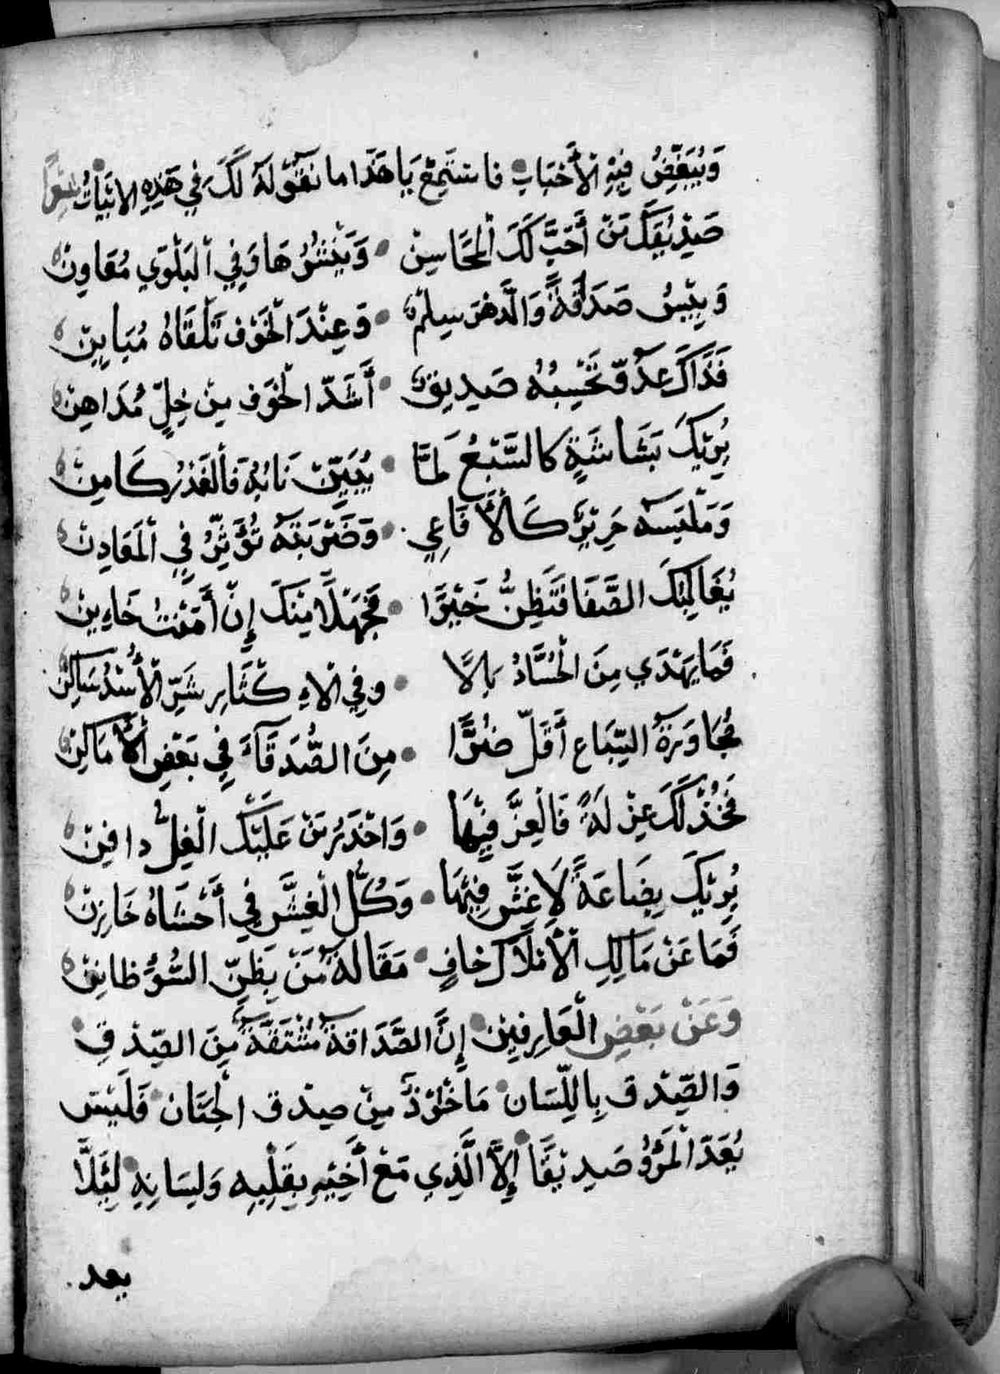 وَيُبَغِّضُ فِيهِ الْأَحْبَابَ فَاسْتَمِعْ يَا هَذَا مَا نَقُولُهُ لَكَ فِي هَذِهِ الْأَبْيَاتِ
صَدِيقُكَ مَنْ أَحَبَّ لَكَ الْمَحَاسِنْ وَيَنْشُرُهَا وَفِي الْبَلْوَى مُعَاوِنْ
صَدَاقَةً وَالدَّهْرَ سِلْمٌ وَعِنْدَ الْخَوْفِ تَلْقَاهُ مُبَايِنْ
فَذَاكَ عَدُوٌّ تَحْسِبُهُ صَدِيقٌ أَشَدُّ الْخَوْفِ مِنْ خِلٍّ مُدَاهِنْ
يُرِيكَ بَشَاشَةً كَالسَّبْعِ لَمَّا يُبَيِّنْ نَابُهُ فَالْغَدْرُ كَامِنْ
وَمَلْبَسُهُ حَرِيرٌ كَالْأَفَاعِي وَضَرْبَتُهُ تُؤَثِّرُ فِي الْمَعَادِنْ
الصَّفَا فَتَظُنُّ خَيْرًا فَجَهْلًا مِنْكَ إِنْ أَمَّنْتَ خَاءِينْ
فَمَا يَهْدَي مِنَ الْحُسَّادْ بَالًا وَفِي شَرِّ الْأُسْدُ سَاكِنْ
مُجَاوَرَةُ السِّبَاعِ أَقَلُّ ضُرًّا مِنَ الصُّدَقَاءَ فِي بَعْضِ الْأَمَاكِنْ
فَخُذْ لَكَ عِزْلَةً فَالْعِزُّ فِيهَا وَاحْذَرْ مَنْ عَلَيْكَ الْغِلُّ دَافِنْ
يُرِيكَ بِضَاعَةً لَا غِشَّ فِيهَا وَكُلُّ الْغِشِّ فِي أَحْشَاهُ خَازِنْ
فَمَا عَنْ مَالِكِ الْأَمْلَاكِ خَافٍ مَقَالَةُ مَنْ يَظُنُّ السُّوءُ ظَانِنْ
وَعَنْ بَعْضِ الْعَارِفِينَ إِنَّ الصَّدَاقَةَ مُشْتَقَّةٌ مِنَ الصِّدْقِ
وَالصِّدْقُ بِاللِّسَانْ مَاخُوذٌ مِنْ صِدْقِ الْجَنَانْ فَلَيْسَ
يُعَدُّ الْمَرْؤُ صَدِيقًا إِلَّا الَّذِي مَعْ أَخِيهِ بِقَلْبِهِ وَلِسَانِهِ لِئَلَّا
بعد